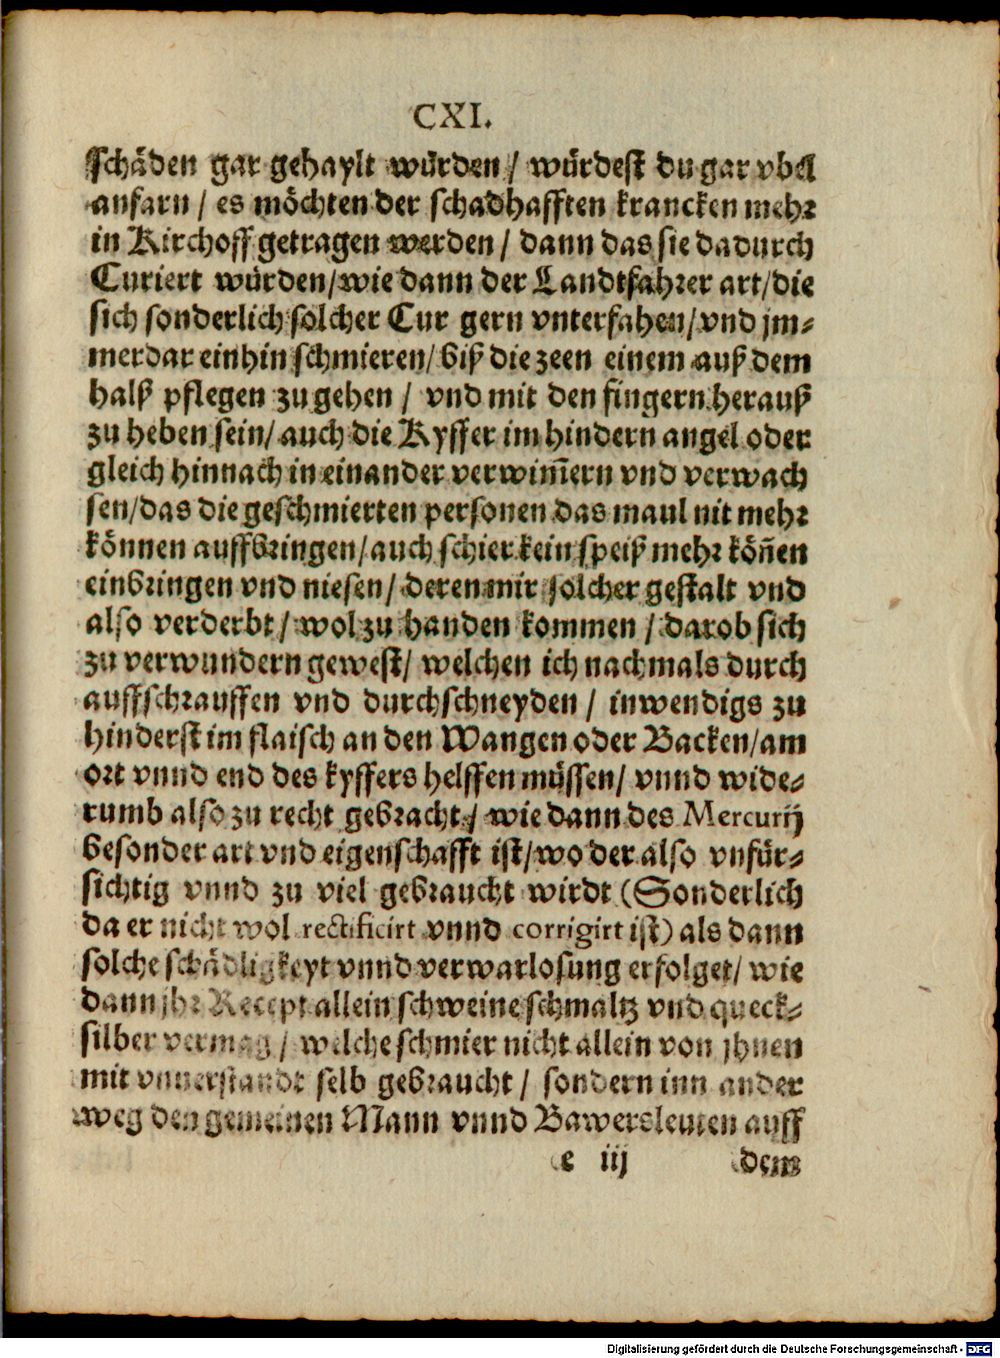 CXI.
schäden gar gehaylt würden / würdest du gar vbel
anfarn / es möchten der schadhafften krancken mehr
in Kirchoff getragen werden / dann das sie dadurch
Curiert würden / wie dann der Landtfahrer art / die
sich sonderlich solcher Cur gern vnterfahen / vnd jm⸗
merdar einhin schmieren / biß die zeen einem auß dem
halß pflegen zu gehen / vnd mit den fingern herauß
zu heben sein / auch die Kyffer im hindern angel oder
gleich hinnach in einander verwim̄ern vnd verwach
sen / das die geschmierten personen das maul nit mehr
können auffbringen / auch schier kein speiß mehr kön̄en
einbringen vnd niesen / deren mir solcher gestalt vnd
also verderbt / wol zu handen kommen / darob sich
zu verwundern gewest / welchen ich nachmals durch
auffschrauffen vnd durchschneyden / inwendigs zu
hinderst im flaisch an den Wangen oder Backen / am
ort vnnd end des kyffers helffen müssen / vnnd wide⸗
rumb also zu recht gebracht / wie dann des Mercurij
besonder art vnd eigenschafft ist / wo der also vnfür⸗
sichtig vnnd zu viel gebraucht wirdt (Sonderlich
da er nicht wol rectificirt vnnd corrigirt ist) als dann
solche schädligkeyt vnnd verwarlosung erfolget / wie
dann jhr Recept allein schweine schmaltz vnd queck⸗
silber vermag / welche schmier nicht allein von jhnen
mit vnuerstandt selb gebraucht / sondern inn ander
weg den gemeinen Mann vnnd Bawersleuten auff
e iij dem
Digitalisierung gefördert durch die Deutsche Forschungsgemeinschaft - DFG